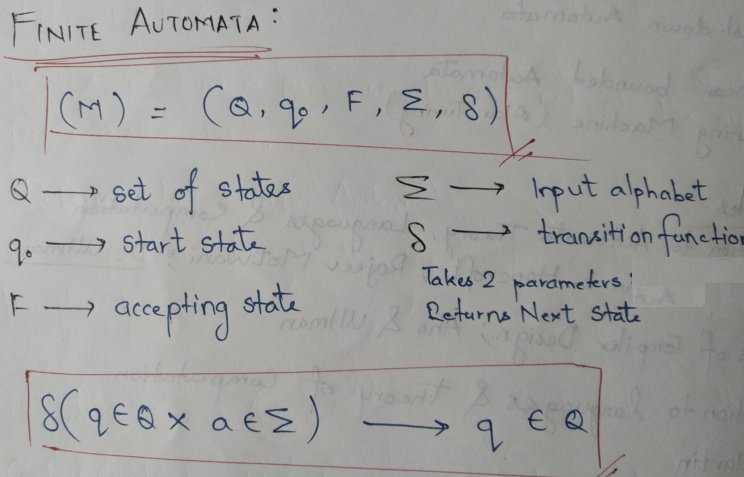 FINITE AUTOMATA:
(M) = (Q, q₀, F, Σ, δ)
Q → set of states
q₀ → start state
F → accepting state
Σ → Input alphabet
δ → transition function
Takes 2 parameters:
Returns Next State
δ(q∈Q × a∈Σ) → q ∈ Q